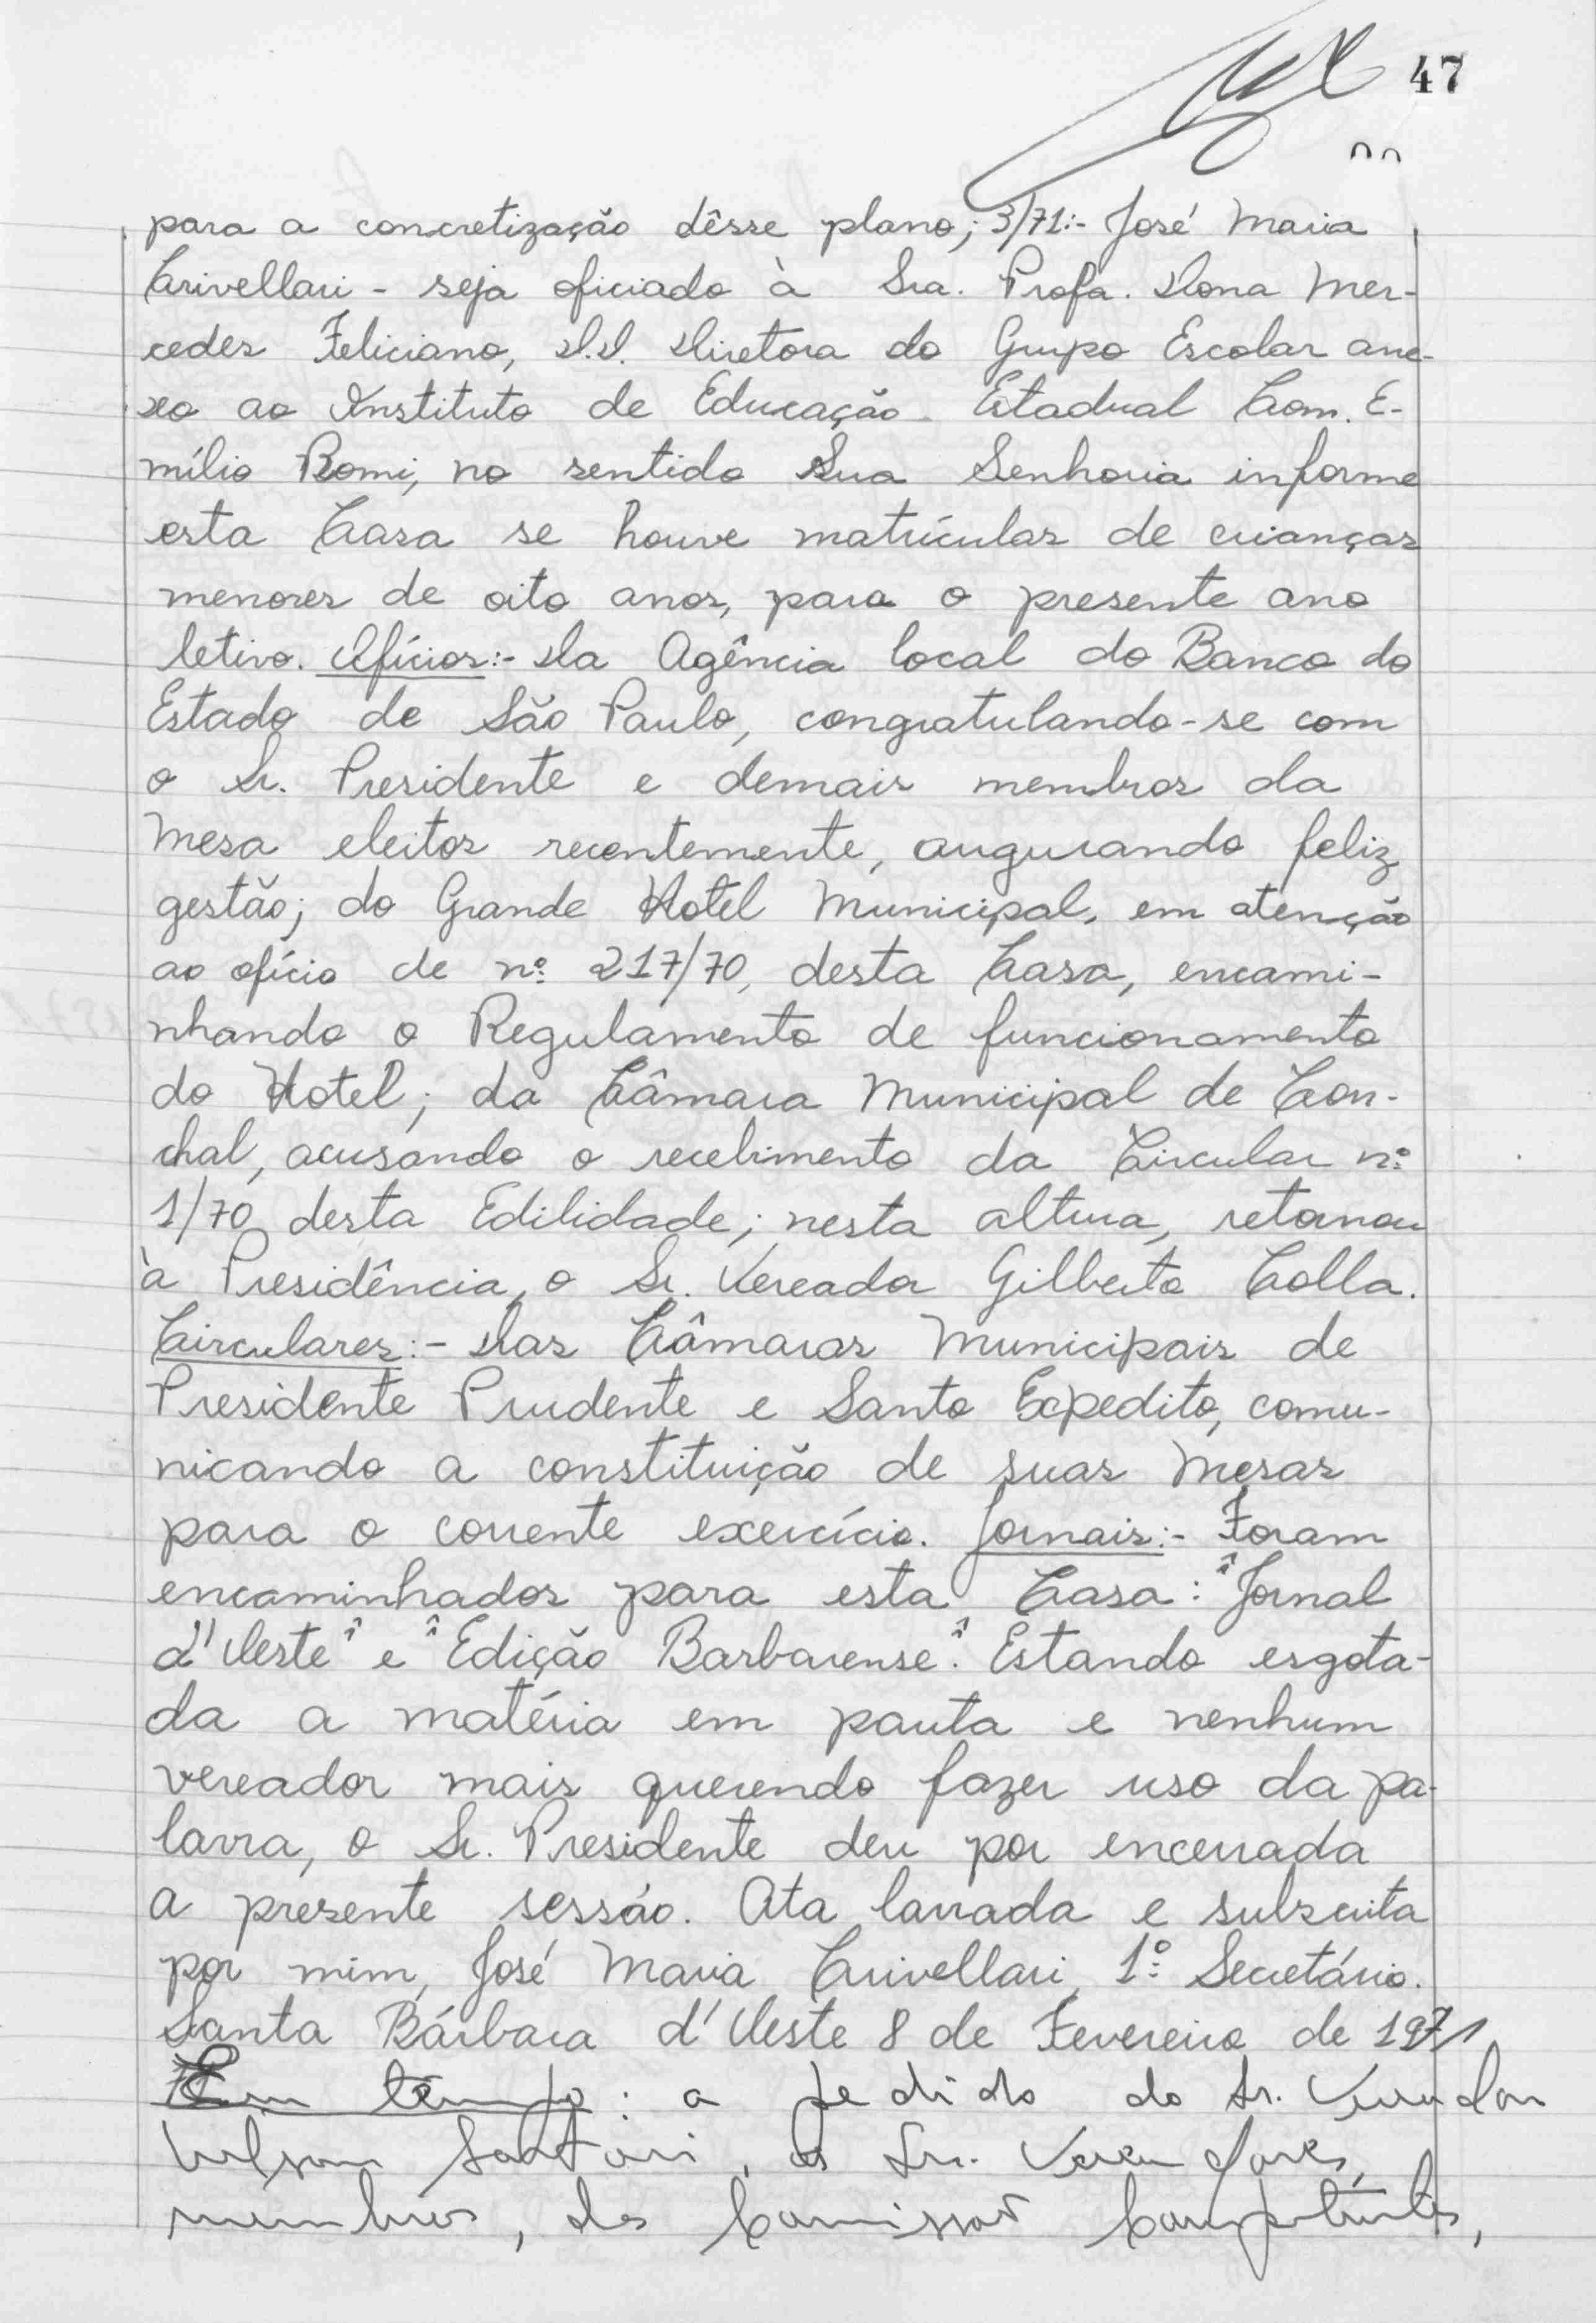 47
para a concretização dêsse plano; 3/71:- José Maria
Crivellari - seja oficiado à Sra. Profa. Dona Mer-
cedes Feliciano, D.D. Diretora do Grupo Escolar ane-
xo ao Instituto de Educação Estadual Com. E-
mílio Romi, no sentido Sua Senhoria informe
esta Casa se houve matrículas de crianças
menores de oito anos, para o presente ano
letivo. Ofícios:- Da Agência local do Banco do
Estado de São Paulo, congratulando-se com
o Sr. Presidente e demais membros da
Mesa eleitos recentemente, augurando feliz
gestão; do Grande Hotel Municipal, em atenção
ao ofício de nº 217/70, desta Casa, encami-
nhando o Regulamento de funcionamento
do Hotel; da Câmara Municipal de Con-
chal, acusando o recebimento da Circular nº
1/70, desta Edilidade; nesta altura, retornou
à Presidência, o Sr. Vereador Gilberto Colla.
Circulares:- Das Câmaras Municipais de
Presidente Prudente e Santo Expedito, comu-
nicando a constituição de suas Mesas
para o corrente exercício. Jornais:- Foram
encaminhados para esta Casa: "Jornal
d'Oeste" e "Edição Barbarense". Estando esgota-
da a matéria em pauta e nenhum
vereador mais querendo fazer uso da pa-
lavra, o Sr. Presidente deu por encerrada
a presente sessão. Ata lavrada e subscrita
por mim, José Maria Crivellari, 1º Secretário.
Santa Bárbara d'Oeste 8 de Fevereiro de 1971
Em tempo: a pedido do Sr. Vereador
Sartori, os Srs. Vereadores,
membros, das Comissões Competentes,